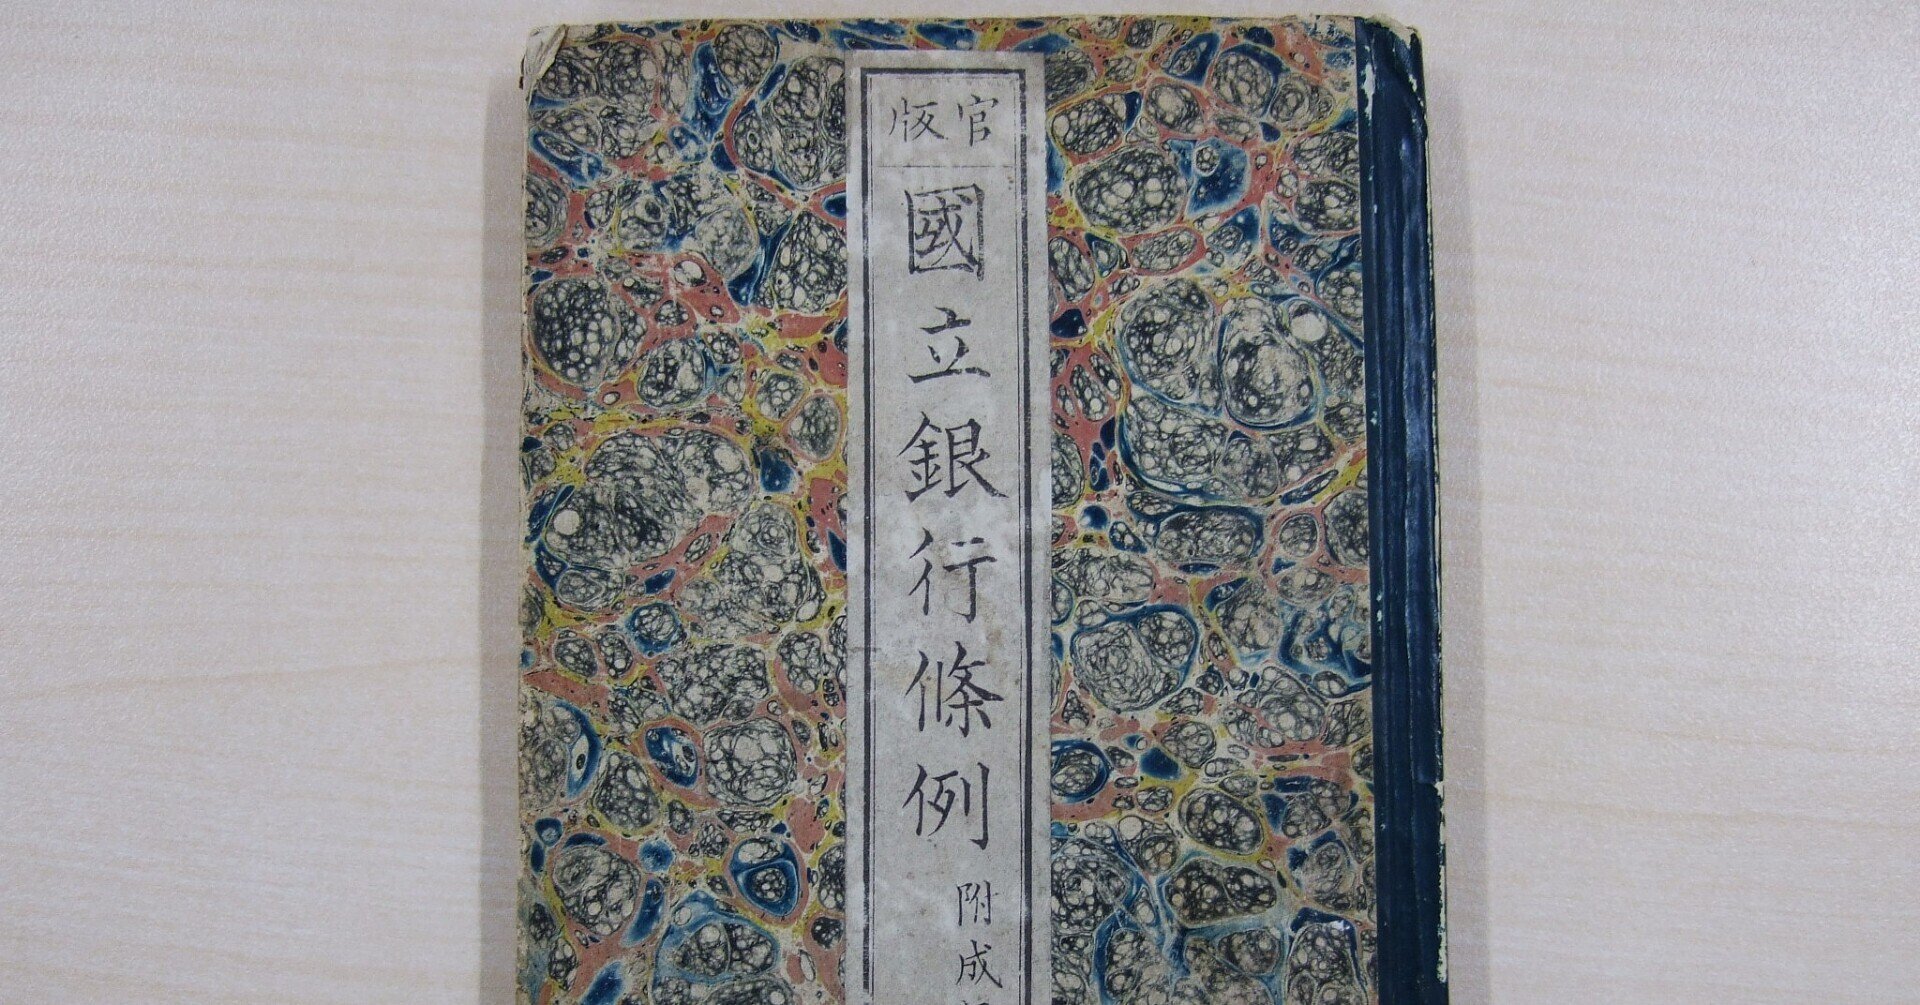 官版
國立銀行條例
附成